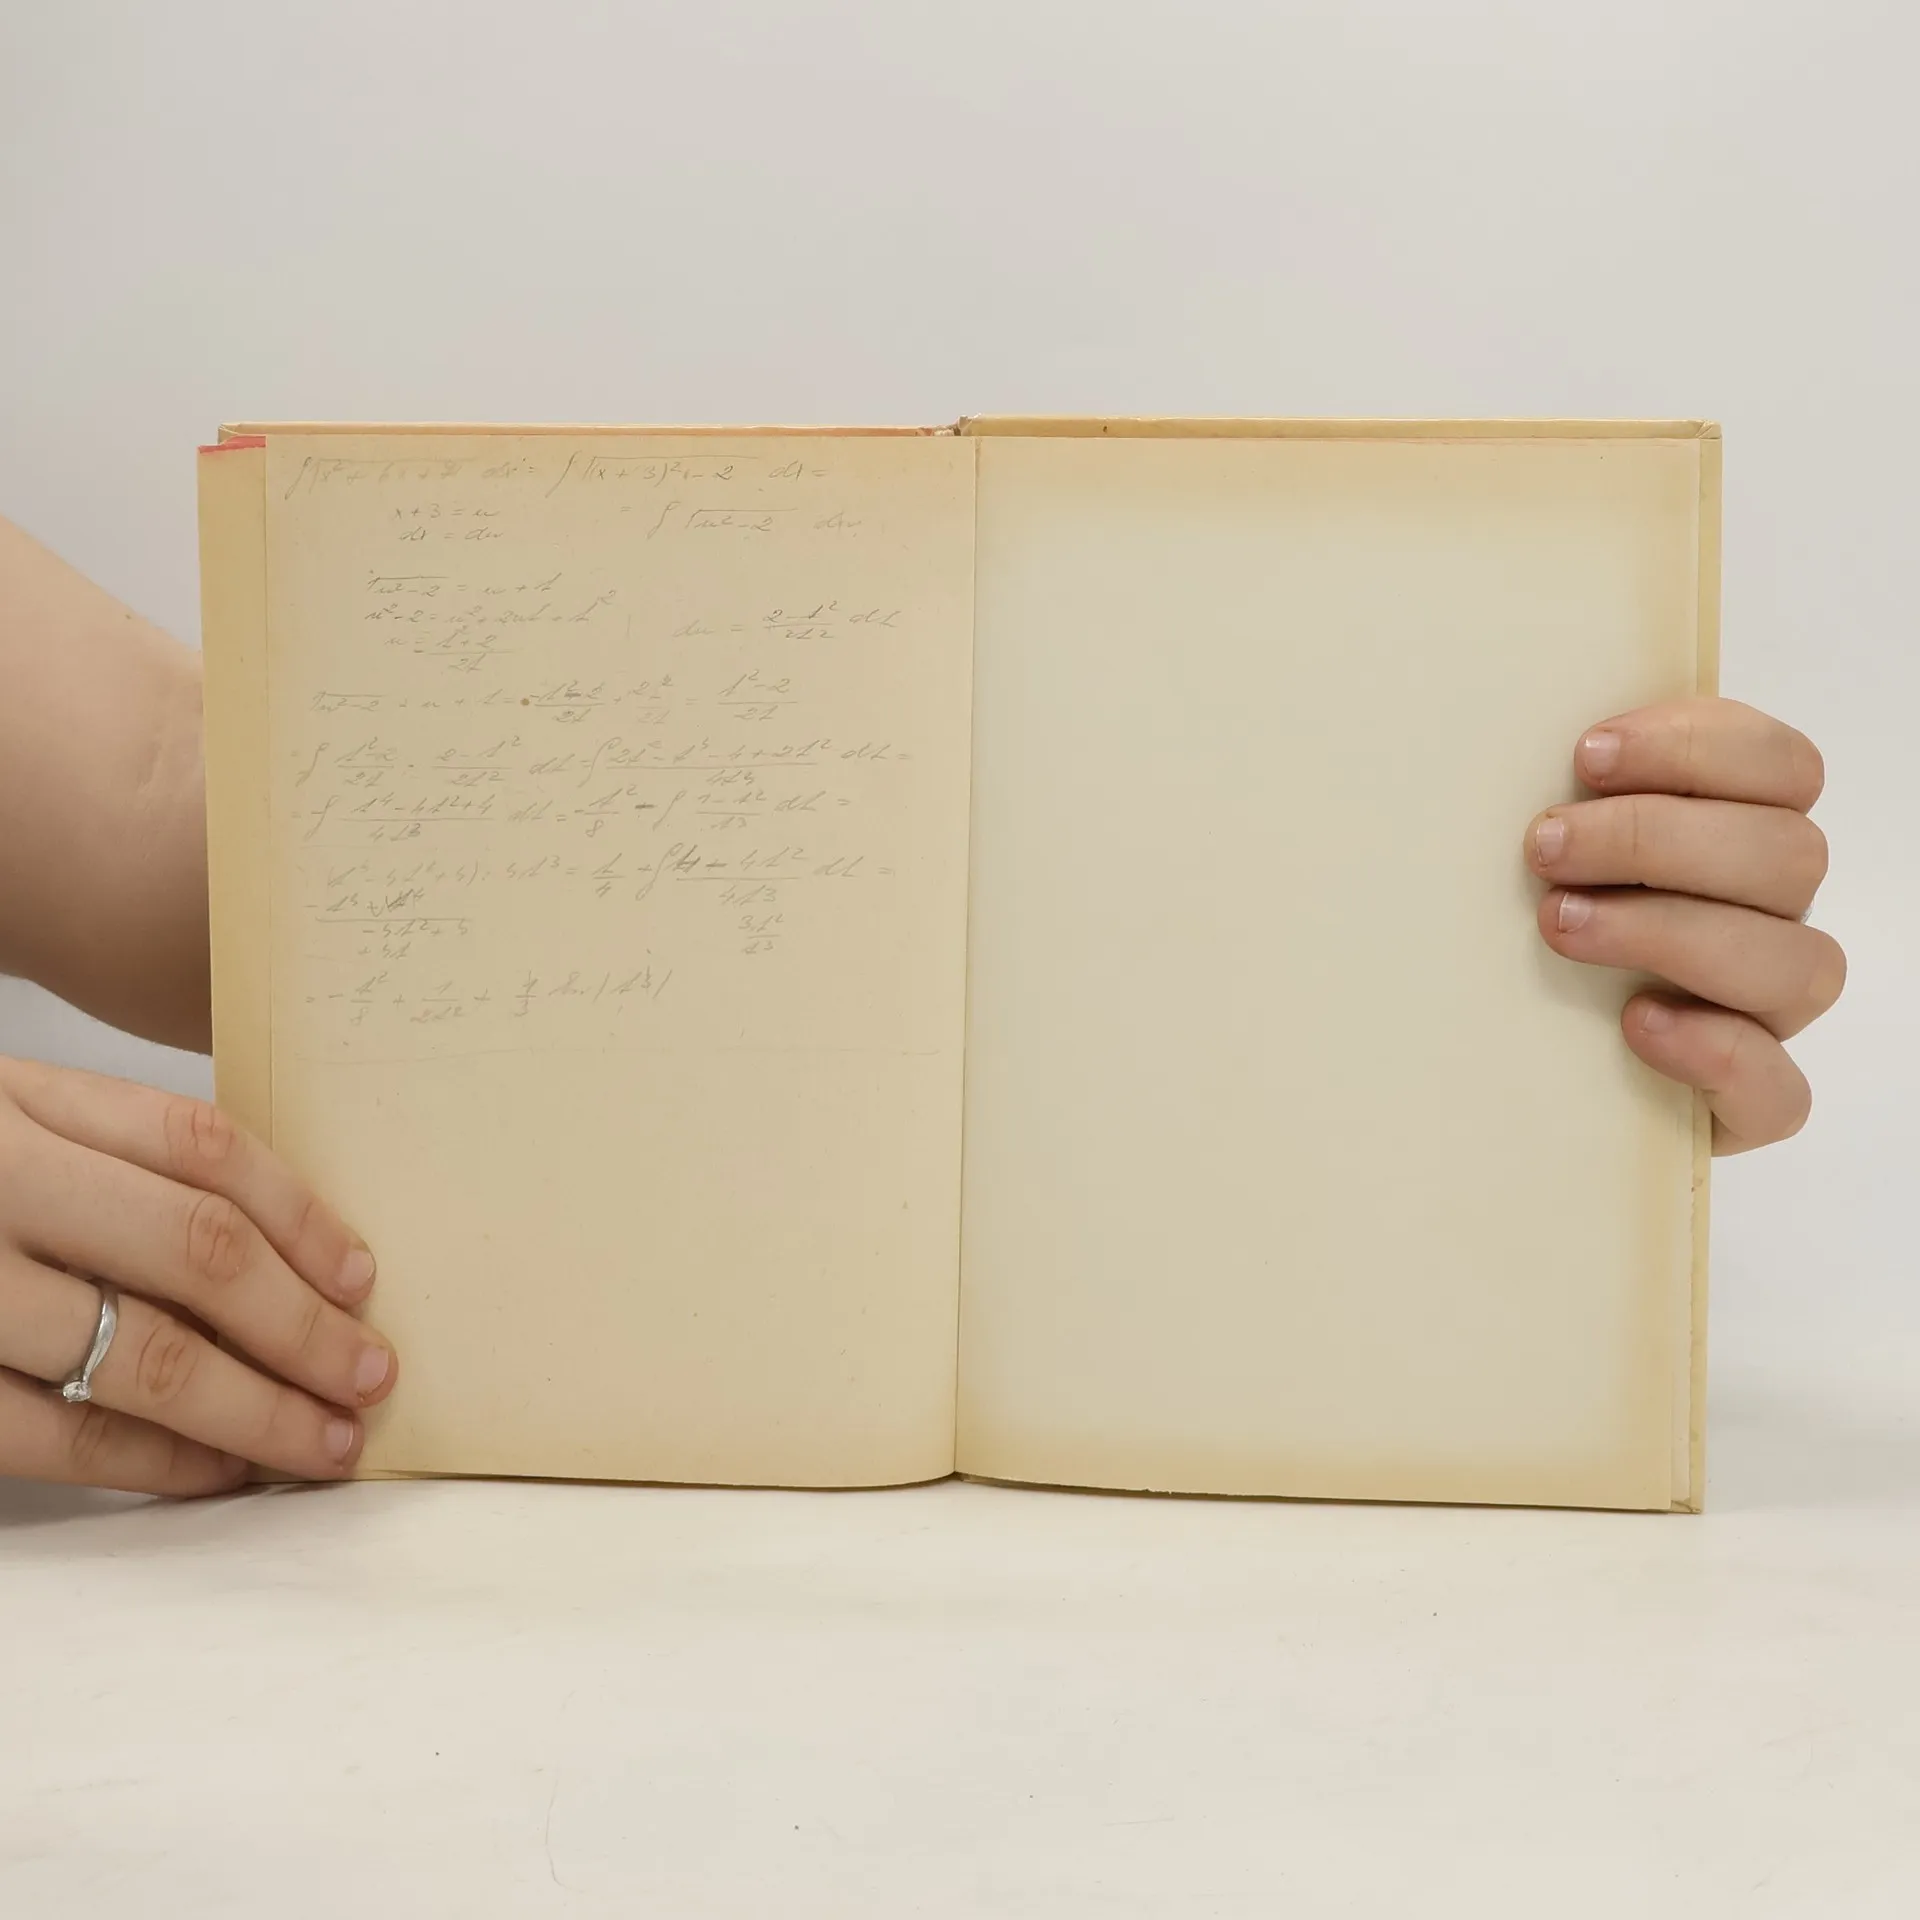 ∫√(x²+6x+7) dx = ∫√((x+3)²-2) dx =
x+3 = u = ∫√(u²-2) du
dx = du
√(u²-2) = u+t
u²-2 = u²+2ut+t²
u = (t²+2)/2t du = (2-t²)/2t² dt
√(u²-2) = u+t = -(t²-2)/2t + 2t²/2t = (t²-2)/2t
= ∫ (t²-2)/2t · (2-t²)/2t² dt = ∫ (2t²-t⁴-4+2t²)/4t³ dt =
= ∫ (t⁴-4t²+4)/4t³ dt = -t²/8 - ∫ (1-t²)/t³ dt =
(t⁴-4t²+4) : 4t³ = t/4 + ∫ (4-4t²)/4t³ dt =
-t⁴
-4t²+4 3t²/t³
+4t
= -t²/8 + 1/2t² + 1/3 ln|t³|